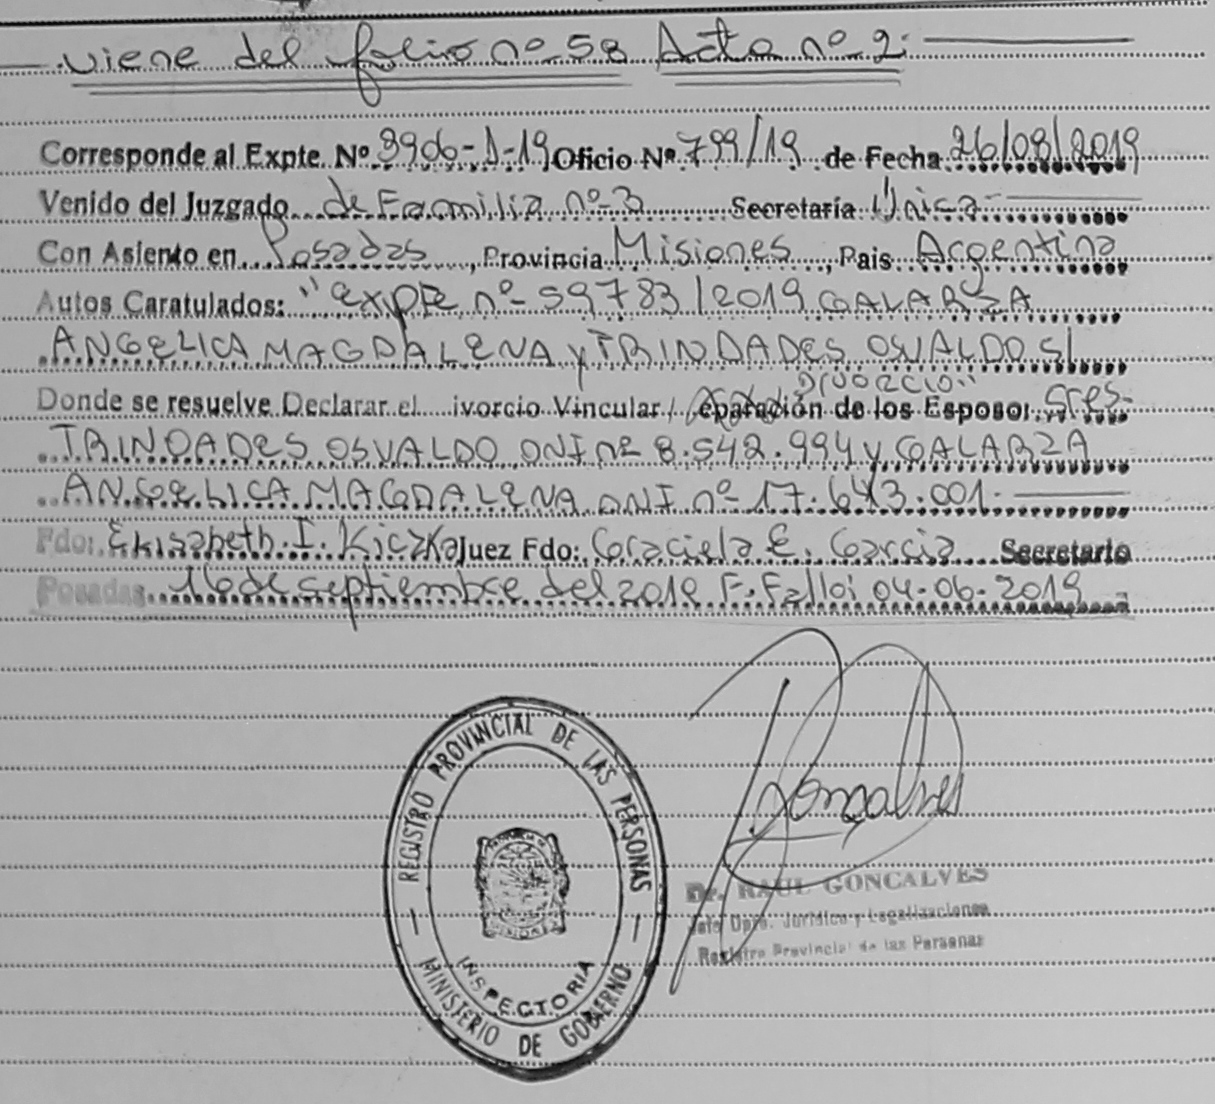 viene del folio nº 58 Acta nº 2.
Corresponde al Expte. Nº 3906-D-19 Oficio Nº 799/19 de Fecha 26/08/2019
Venido del Juzgado de Familia nº 3 Secretaría Unica
Con Asiento en Posadas, Provincia Misiones, Pais Argentina
Autos Caratulados: "EXPTE nº 59783/2019 GALARZA
ANGELICA MAGDALENA y TRINDADES OSVALDO S/
DIVORCIO"
Donde se resuelve Declarar el ivorcio Vincular / eparación de los Esposos Sres.
TRINDADES OSVALDO DNI nº 8.542.994 y GALARZA
ANGELICA MAGDALENA DNI nº 17.643.001.
Fdo: Elisabeth I. Kiczka Juez Fdo: Graciela E. Garcia Secretario
Posadas 16 de septiembre del 2019 F. Fallo: 04-06-2019
REGISTRO PROVINCIAL DE LAS PERSONAS
INSPECTORIA
MINISTERIO DE GOBIERNO
Goncalves
Dr. RAUL GONCALVES
Jefe Dpto. Jurídico y Legalizaciones
Registro Provincial de las Personas